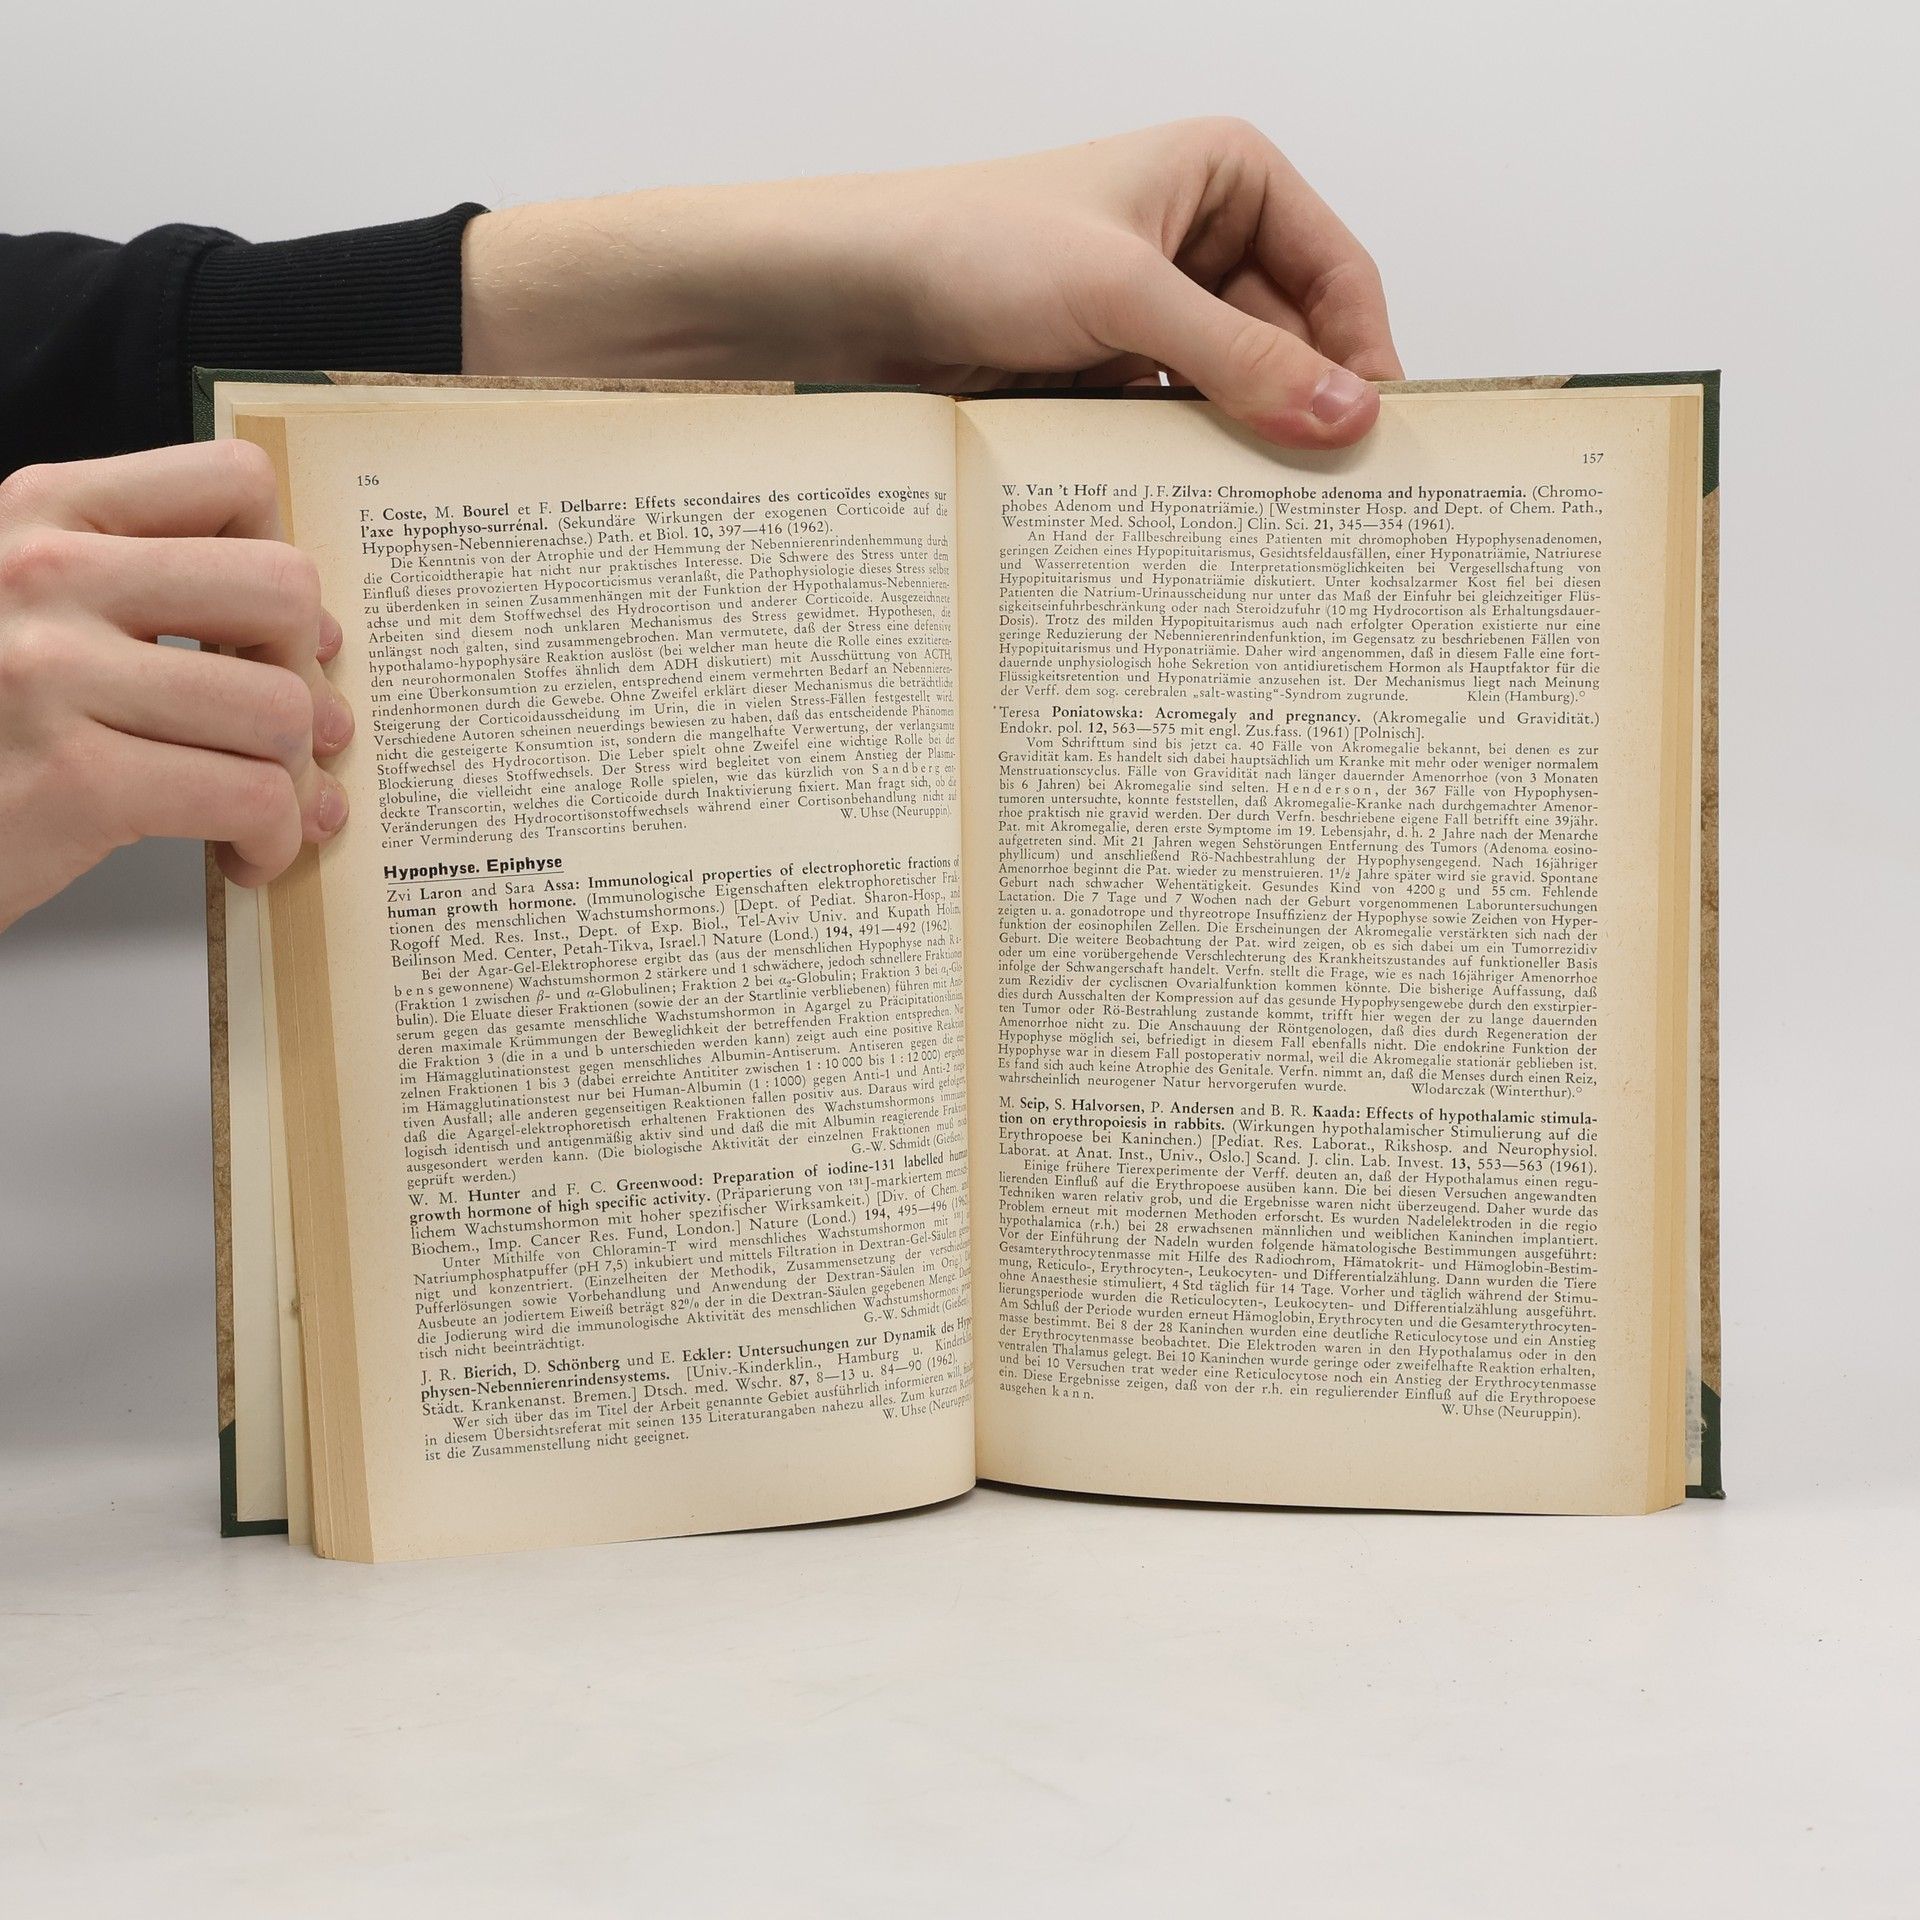 156
F. Coste, M. Bourel et F. Delbarre: Effets secondaires des corticoïdes exogènes sur
l'axe hypophyso-surrénal. (Sekundäre Wirkungen der exogenen Corticoide auf die
Hypophysen-Nebennierenachse.) Path. et Biol. 10, 397—416 (1962).
Die Kenntnis von der Atrophie und der Hemmung der Nebennierenrindenhemmung durch
die Corticoidtherapie hat nicht nur praktisches Interesse. Die Schwere des Stress unter dem
Einfluß dieses provozierten Hypocorticismus veranlaßt, die Pathophysiologie dieses Stress selbst
zu überdenken in seinen Zusammenhängen mit der Funktion der Hypothalamus-Nebennieren-
achse und mit dem Stoffwechsel des Hydrocortison und anderer Corticoide. Ausgezeichnete
Arbeiten sind diesem noch unklaren Mechanismus des Stress gewidmet. Hypothesen, die
unlängst noch galten, sind zusammengebrochen. Man vermutete, daß der Stress eine defensive
hypothalamo-hypophysäre Reaktion auslöst (bei welcher man heute die Rolle eines exzitieren-
den neurohormonalen Stoffes ähnlich dem ADH diskutiert) mit Ausschüttung von ACTH,
um eine Überkonsumtion zu erzielen, entsprechend einem vermehrten Bedarf an Nebennieren-
rindenhormonen durch die Gewebe. Ohne Zweifel erklärt dieser Mechanismus die beträchtliche
Steigerung der Corticoidausscheidung im Urin, die in vielen Stress-Fällen festgestellt wird.
Verschiedene Autoren scheinen neuerdings bewiesen zu haben, daß das entscheidende Phänomen
nicht die gesteigerte Konsumtion ist, sondern die mangelhafte Verwertung, der verlangsamte
Stoffwechsel des Hydrocortison. Die Leber spielt ohne Zweifel eine wichtige Rolle bei der
Blockierung dieses Stoffwechsels. Der Stress wird begleitet von einem Anstieg der Plasma-
globuline, die vielleicht eine analoge Rolle spielen, wie das kürzlich von Sandberg ent-
deckte Transcortin, welches die Corticoide durch Inaktivierung fixiert. Man fragt sich, ob die
Veränderungen des Hydrocortisonstoffwechsels während einer Cortisonbehandlung nicht auf
einer Verminderung des Transcortins beruhen. W. Uhse (Neuruppin).
Hypophyse. Epiphyse
Zvi Laron and Sara Assa: Immunological properties of electrophoretic fractions of
human growth hormone. (Immunologische Eigenschaften elektrophoretischer Frak-
tionen des menschlichen Wachstumshormons.) [Dept. of Pediat. Sharon-Hosp., and
Rogoff Med. Res. Inst., Dept. of Exp. Biol., Tel-Aviv Univ. and Kupath Holim,
Beilinson Med. Center, Petah-Tikva, Israel.] Nature (Lond.) 194, 491—492 (1962).
Bei der Agar-Gel-Elektrophorese ergibt das (aus der menschlichen Hypophyse nach Ra-
bens gewonnene) Wachstumshormon 2 stärkere und 1 schwächere, jedoch schnellere Fraktionen
(Fraktion 1 zwischen β- und α-Globulinen; Fraktion 2 bei α₂-Globulin; Fraktion 3 bei α₁-Glo-
bulin). Die Eluate dieser Fraktionen (sowie der an der Startlinie verbliebenen) führen mit Anti-
serum gegen das gesamte menschliche Wachstumshormon in Agargel zu Präcipitationslinien,
deren maximale Krümmungen der Beweglichkeit der betreffenden Fraktion entsprechen. Nur
die Fraktion 3 (die in a und b unterschieden werden kann) zeigt auch eine positive Reaktion
im Hämagglutinationstest gegen menschliches Albumin-Antiserum. Antiseren gegen die ein-
zelnen Fraktionen 1 bis 3 (dabei erreichte Antititer zwischen 1:10 000 bis 1:12 000) ergeben
im Hämagglutinationstest nur bei Human-Albumin (1:1000) gegen Anti-1 und Anti-2 nega-
tiven Ausfall; alle anderen gegenseitigen Reaktionen fallen positiv aus. Daraus wird gefolgert,
daß die Agargel-elektrophoretisch erhaltenen Fraktionen des Wachstumshormons immuno-
logisch identisch und antigenmäßig aktiv sind und daß die mit Albumin reagierende Fraktion
ausgesondert werden kann. (Die biologische Aktivität der einzelnen Fraktionen muß noch
geprüft werden.) G.-W. Schmidt (Gießen).
W. M. Hunter and F. C. Greenwood: Preparation of iodine-131 labelled human
growth hormone of high specific activity. (Präparierung von ¹³¹J-markiertem mensch-
lichem Wachstumshormon mit hoher spezifischer Wirksamkeit.) [Div. of Chem. and
Biochem., Imp. Cancer Res. Fund, London.] Nature (Lond.) 194, 495—496 (1962).
Unter Mithilfe von Chloramin-T wird menschliches Wachstumshormon mit ¹³¹J in
Natriumphosphatpuffer (pH 7,5) inkubiert und mittels Filtration in Dextran-Gel-Säulen gerei-
nigt und konzentriert. (Einzelheiten der Methodik, Zusammensetzung der verschiedenen
Pufferlösungen sowie Vorbehandlung und Anwendung der Dextran-Säulen im Orig.) Die
Ausbeute an jodiertem Eiweiß beträgt 82% der in die Dextran-Säulen gegebenen Menge. Durch
die Jodierung wird die immunologische Aktivität des menschlichen Wachstumshormons prak-
tisch nicht beeinträchtigt. G.-W. Schmidt (Gießen).
J. R. Bierich, D. Schönberg und E. Eckler: Untersuchungen zur Dynamik des Hypo-
physen-Nebennierenrindensystems. [Univ.-Kinderklin., Hamburg u. Kinderklin.
Städt. Krankenanst. Bremen.] Dtsch. med. Wschr. 87, 8—13 u. 84—90 (1962).
Wer sich über das im Titel der Arbeit genannte Gebiet ausführlich informieren will, findet
in diesem Übersichtsreferat mit seinen 135 Literaturangaben nahezu alles. Zum kurzen Referat
ist die Zusammenstellung nicht geeignet. W. Uhse (Neuruppin).
157
W. Van 't Hoff and J. F. Zilva: Chromophobe adenoma and hyponatraemia. (Chromo-
phobes Adenom und Hyponatriämie.) [Westminster Hosp. and Dept. of Chem. Path.,
Westminster Med. School, London.] Clin. Sci. 21, 345—354 (1961).
An Hand der Fallbeschreibung eines Patienten mit chromophoben Hypophysenadenomen,
geringen Zeichen eines Hypopituitarismus, Gesichtsfeldausfällen, einer Hyponatriämie, Natriurese
und Wasserretention werden die Interpretationsmöglichkeiten bei Vergesellschaftung von
Hypopituitarismus und Hyponatriämie diskutiert. Unter kochsalzarmer Kost fiel bei diesen
Patienten die Natrium-Urinausscheidung nur unter das Maß der Einfuhr bei gleichzeitiger Flüs-
sigkeitseinfuhrbeschränkung oder nach Steroidzufuhr (10 mg Hydrocortison als Erhaltungsdauer-
Dosis). Trotz des milden Hypopituitarismus auch nach erfolgter Operation existierte nur eine
geringe Reduzierung der Nebennierenrindenfunktion, im Gegensatz zu beschriebenen Fällen von
Hypopituitarismus und Hyponatriämie. Daher wird angenommen, daß in diesem Falle eine fort-
dauernde unphysiologisch hohe Sekretion von antidiuretischem Hormon als Hauptfaktor für die
Flüssigkeitsretention und Hyponatriämie anzusehen ist. Der Mechanismus liegt nach Meinung
der Verff. dem sog. cerebralen „salt-wasting“-Syndrom zugrunde. Klein (Hamburg).°
Teresa Poniatowska: Acromegaly and pregnancy. (Akromegalie und Gravidität.)
Endokr. pol. 12, 563—575 mit engl. Zus.fass. (1961) [Polnisch].
Vom Schrifttum sind bis jetzt ca. 40 Fälle von Akromegalie bekannt, bei denen es zur
Gravidität kam. Es handelt sich dabei hauptsächlich um Kranke mit mehr oder weniger normalem
Menstruationscyclus. Fälle von Gravidität nach länger dauernder Amenorrhoe (von 3 Monaten
bis 6 Jahren) bei Akromegalie sind selten. Henderson, der 367 Fälle von Hypophysen-
tumoren untersuchte, konnte feststellen, daß Akromegalie-Kranke nach durchgemachter Amenor-
rhoe praktisch nie gravid werden. Der durch Verfn. beschriebene eigene Fall betrifft eine 39jähr.
Pat. mit Akromegalie, deren erste Symptome im 19. Lebensjahr, d. h. 2 Jahre nach der Menarche
aufgetreten sind. Mit 21 Jahren wegen Sehstörungen Entfernung des Tumors (Adenoma eosino-
phyllicum) und anschließend Rö-Nachbestrahlung der Hypophysengegend. Nach 16jähriger
Amenorrhoe beginnt die Pat. wieder zu menstruieren. 1½ Jahre später wird sie gravid. Spontane
Geburt nach schwacher Wehentätigkeit. Gesundes Kind von 4200 g und 55 cm. Fehlende
Lactation. Die 7 Tage und 7 Wochen nach der Geburt vorgenommenen Laboruntersuchungen
zeigten u. a. gonadotrope und thyreotrope Insuffizienz der Hypophyse sowie Zeichen von Hyper-
funktion der eosinophilen Zellen. Die Erscheinungen der Akromegalie verstärkten sich nach der
Geburt. Die weitere Beobachtung der Pat. wird zeigen, ob es sich dabei um ein Tumorrezidiv
oder um eine vorübergehende Verschlechterung des Krankheitszustandes auf funktioneller Basis
infolge der Schwangerschaft handelt. Verfn. stellt die Frage, wie es nach 16jähriger Amenorrhoe
zum Rezidiv der cyclischen Ovarialfunktion kommen könnte. Die bisherige Auffassung, daß
dies durch Ausschalten der Kompression auf das gesunde Hypophysengewebe durch den exstirpier-
ten Tumor oder Rö-Bestrahlung zustande kommt, trifft hier wegen der zu lange dauernden
Amenorrhoe nicht zu. Die Anschauung der Röntgenologen, daß dies durch Regeneration der
Hypophyse möglich sei, befriedigt in diesem Fall ebenfalls nicht. Die endokrine Funktion der
Hypophyse war in diesem Fall postoperativ normal, weil die Akromegalie stationär geblieben ist.
Es fand sich auch keine Atrophie des Genitale. Verfn. nimmt an, daß die Menses durch einen Reiz,
wahrscheinlich neurogener Natur hervorgerufen wurde. Wlodarczak (Winterthur).°
M. Seip, S. Halvorsen, P. Andersen and B. R. Kaada: Effects of hypothalamic stimula-
tion on erythropoiesis in rabbits. (Wirkungen hypothalamischer Stimulierung auf die
Erythropoese bei Kaninchen.) [Pediat. Res. Laborat., Rikshosp. and Neurophysiol.
Laborat. at Anat. Inst., Univ., Oslo.] Scand. J. clin. Lab. Invest. 13, 553—563 (1961).
Einige frühere Tierexperimente der Verff. deuten an, daß der Hypothalamus einen regu-
lierenden Einfluß auf die Erythropoese ausüben kann. Die bei diesen Versuchen angewandten
Techniken waren relativ grob, und die Ergebnisse waren nicht überzeugend. Daher wurde das
Problem erneut mit modernen Methoden erforscht. Es wurden Nadelelektroden in die regio
hypothalamica (r.h.) bei 28 erwachsenen männlichen und weiblichen Kaninchen implantiert.
Vor der Einführung der Nadeln wurden folgende hämatologische Bestimmungen ausgeführt:
Gesamterythrocytenmasse mit Hilfe des Radiochrom, Hämatokrit- und Hämoglobin-Bestim-
mung, Reticulo-, Erythrocyten-, Leukocyten- und Differentialzählung. Dann wurden die Tiere
ohne Anaesthesie stimuliert, 4 Std täglich für 14 Tage. Vorher und täglich während der Stimu-
lierungsperiode wurden die Reticulocyten-, Leukocyten- und Differentialzählung ausgeführt.
Am Schluß der Periode wurden erneut Hämoglobin, Erythrocyten und die Gesamterythrocyten-
masse bestimmt. Bei 8 der 28 Kaninchen wurden eine deutliche Reticulocytose und ein Anstieg
der Erythrocytenmasse beobachtet. Die Elektroden waren in den Hypothalamus oder in den
ventralen Thalamus gelegt. Bei 10 Kaninchen wurde geringe oder zweifelhafte Reaktion erhalten,
und bei 10 Versuchen trat weder eine Reticulocytose noch ein Anstieg der Erythrocytenmasse
ein. Diese Ergebnisse zeigen, daß von der r.h. ein regulierender Einfluß auf die Erythropoese
ausgehen kann.
W. Uhse (Neuruppin).